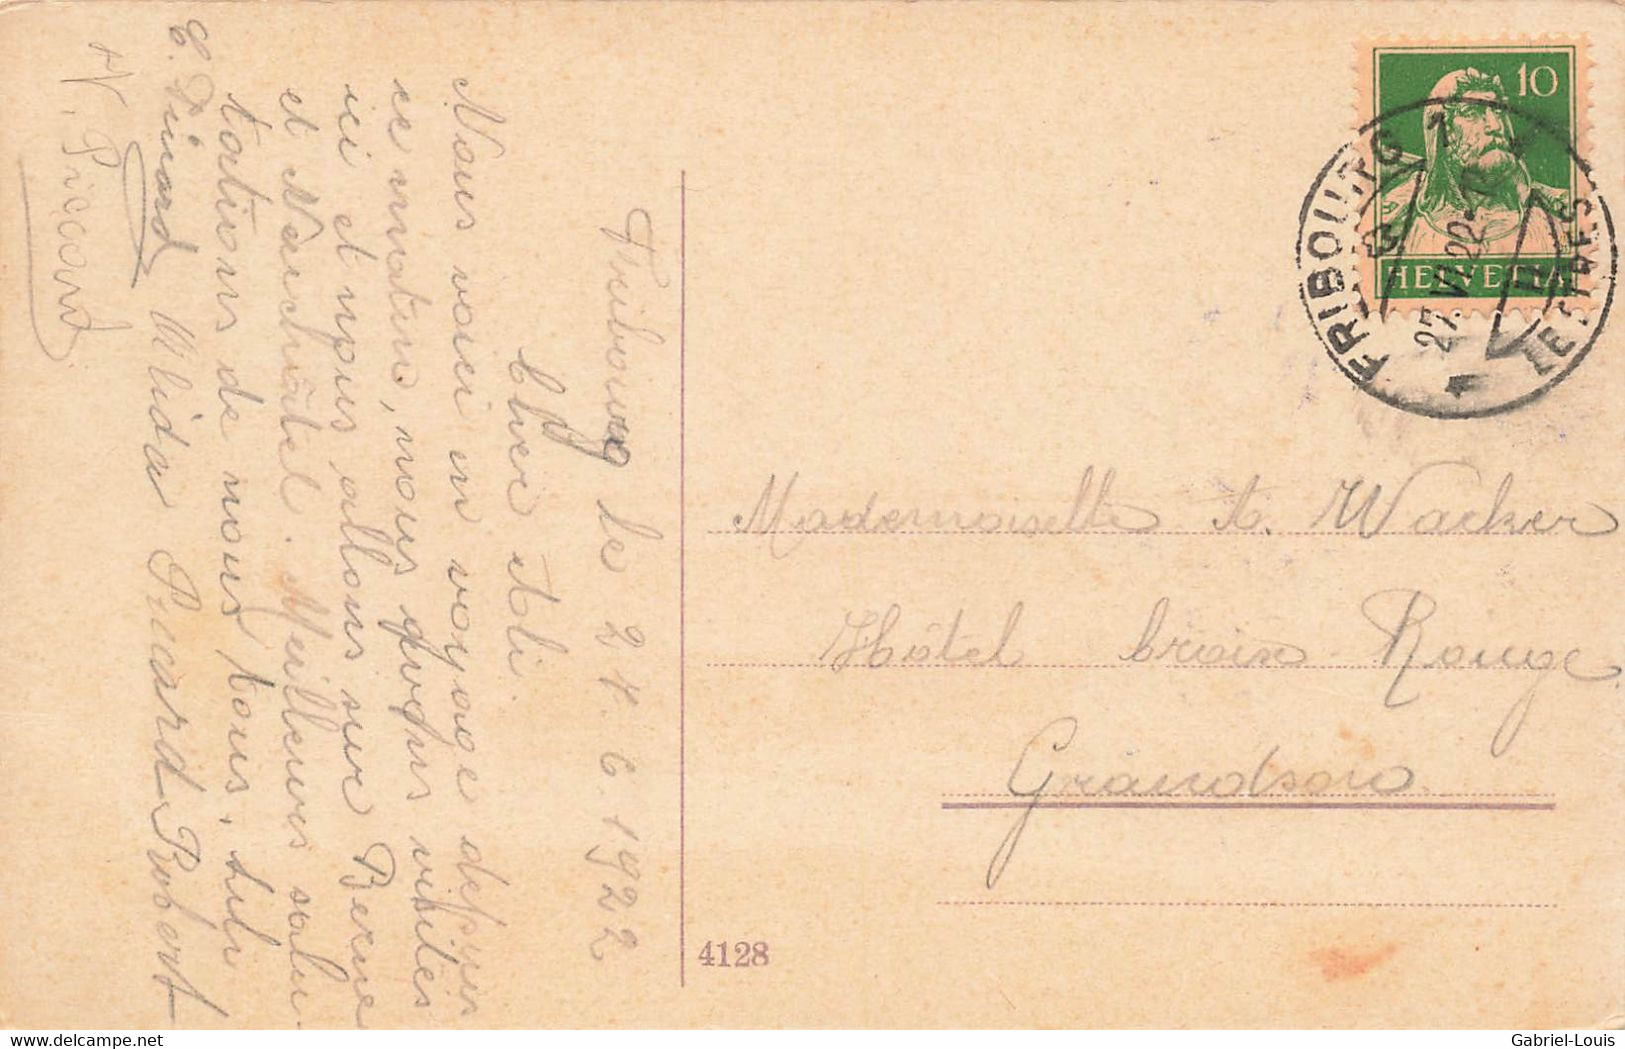 Fribourg le 27.6.1922
Cher Ali.
Nous voici en voyage depuis
ce matin, nous avons visités
ici et nous allons sur Berne
et Neuchâtel. Meilleurs salu-
tations de nous tous,
E. Picard Alida Piccard Robert
Piccard
10
HELVETIA
FRIBOURG 1
LETTRES
27.VI.22
Mademoiselle A. Wacker
Hôtel Croix Rouge
Grandson
4128
Gabriel-Louis